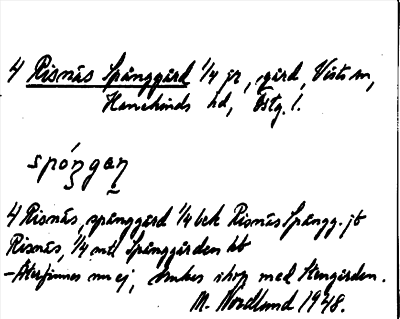 4 Risnäs Spånggård 1/4 jr, gård, Vists sn,
Hanekinds hd, Östg. l.
spóŋgaṇ
4 Risnäs, spånggård 1/4 bek Risnäs Spångg. jb
Risnäs, 1/4 mtl Spånggården kb
– Återfinnes nu ej, brukes ihop med Stengården.
M. Nordlund 1948.